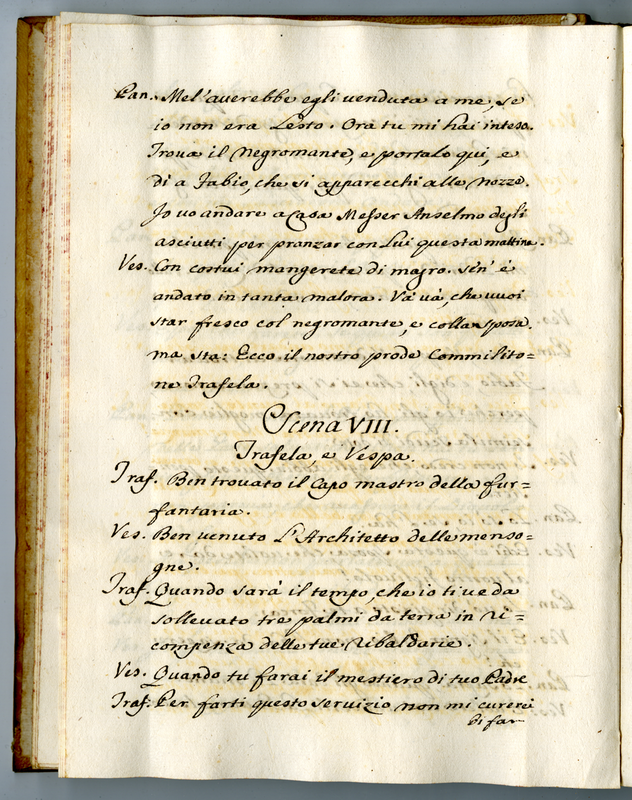 Pan. Mel'averebbe egli venduta a me, se
io non era Lesto. Ora tu mi hai inteso.
Trova il negromante, e portalo qui, e
di a Fabio, che si apparecchi alle nozze.
Io vo andare a Casa Messer Anselmo degli
asciutti per pranzar con Lui questa mattina.
Ves. Con costui mangerete di magro. Sin' è
andato in tanta malora. Va' và, che vuoi
star fresco col negromante, e colla sposa.
ma sta: Ecco il nostro prode Commilito=
ne Trafela.
Scena VIII.
Trafela, e Vespa.
Traf. Ben trovato il Capo mastro della fur=
fantaria.
Ves. Ben venuto L'Architetto delle menso=
gne.
Traf. Quando sarà il tempo, che io ti veda
sollevato tre palmi da terra in ri=
compenza delle tue ribalderie.
Ves. Quando tu farai il mestiero di tuo Padre
Traf. Per farti questo servizio non mi curerei
di far